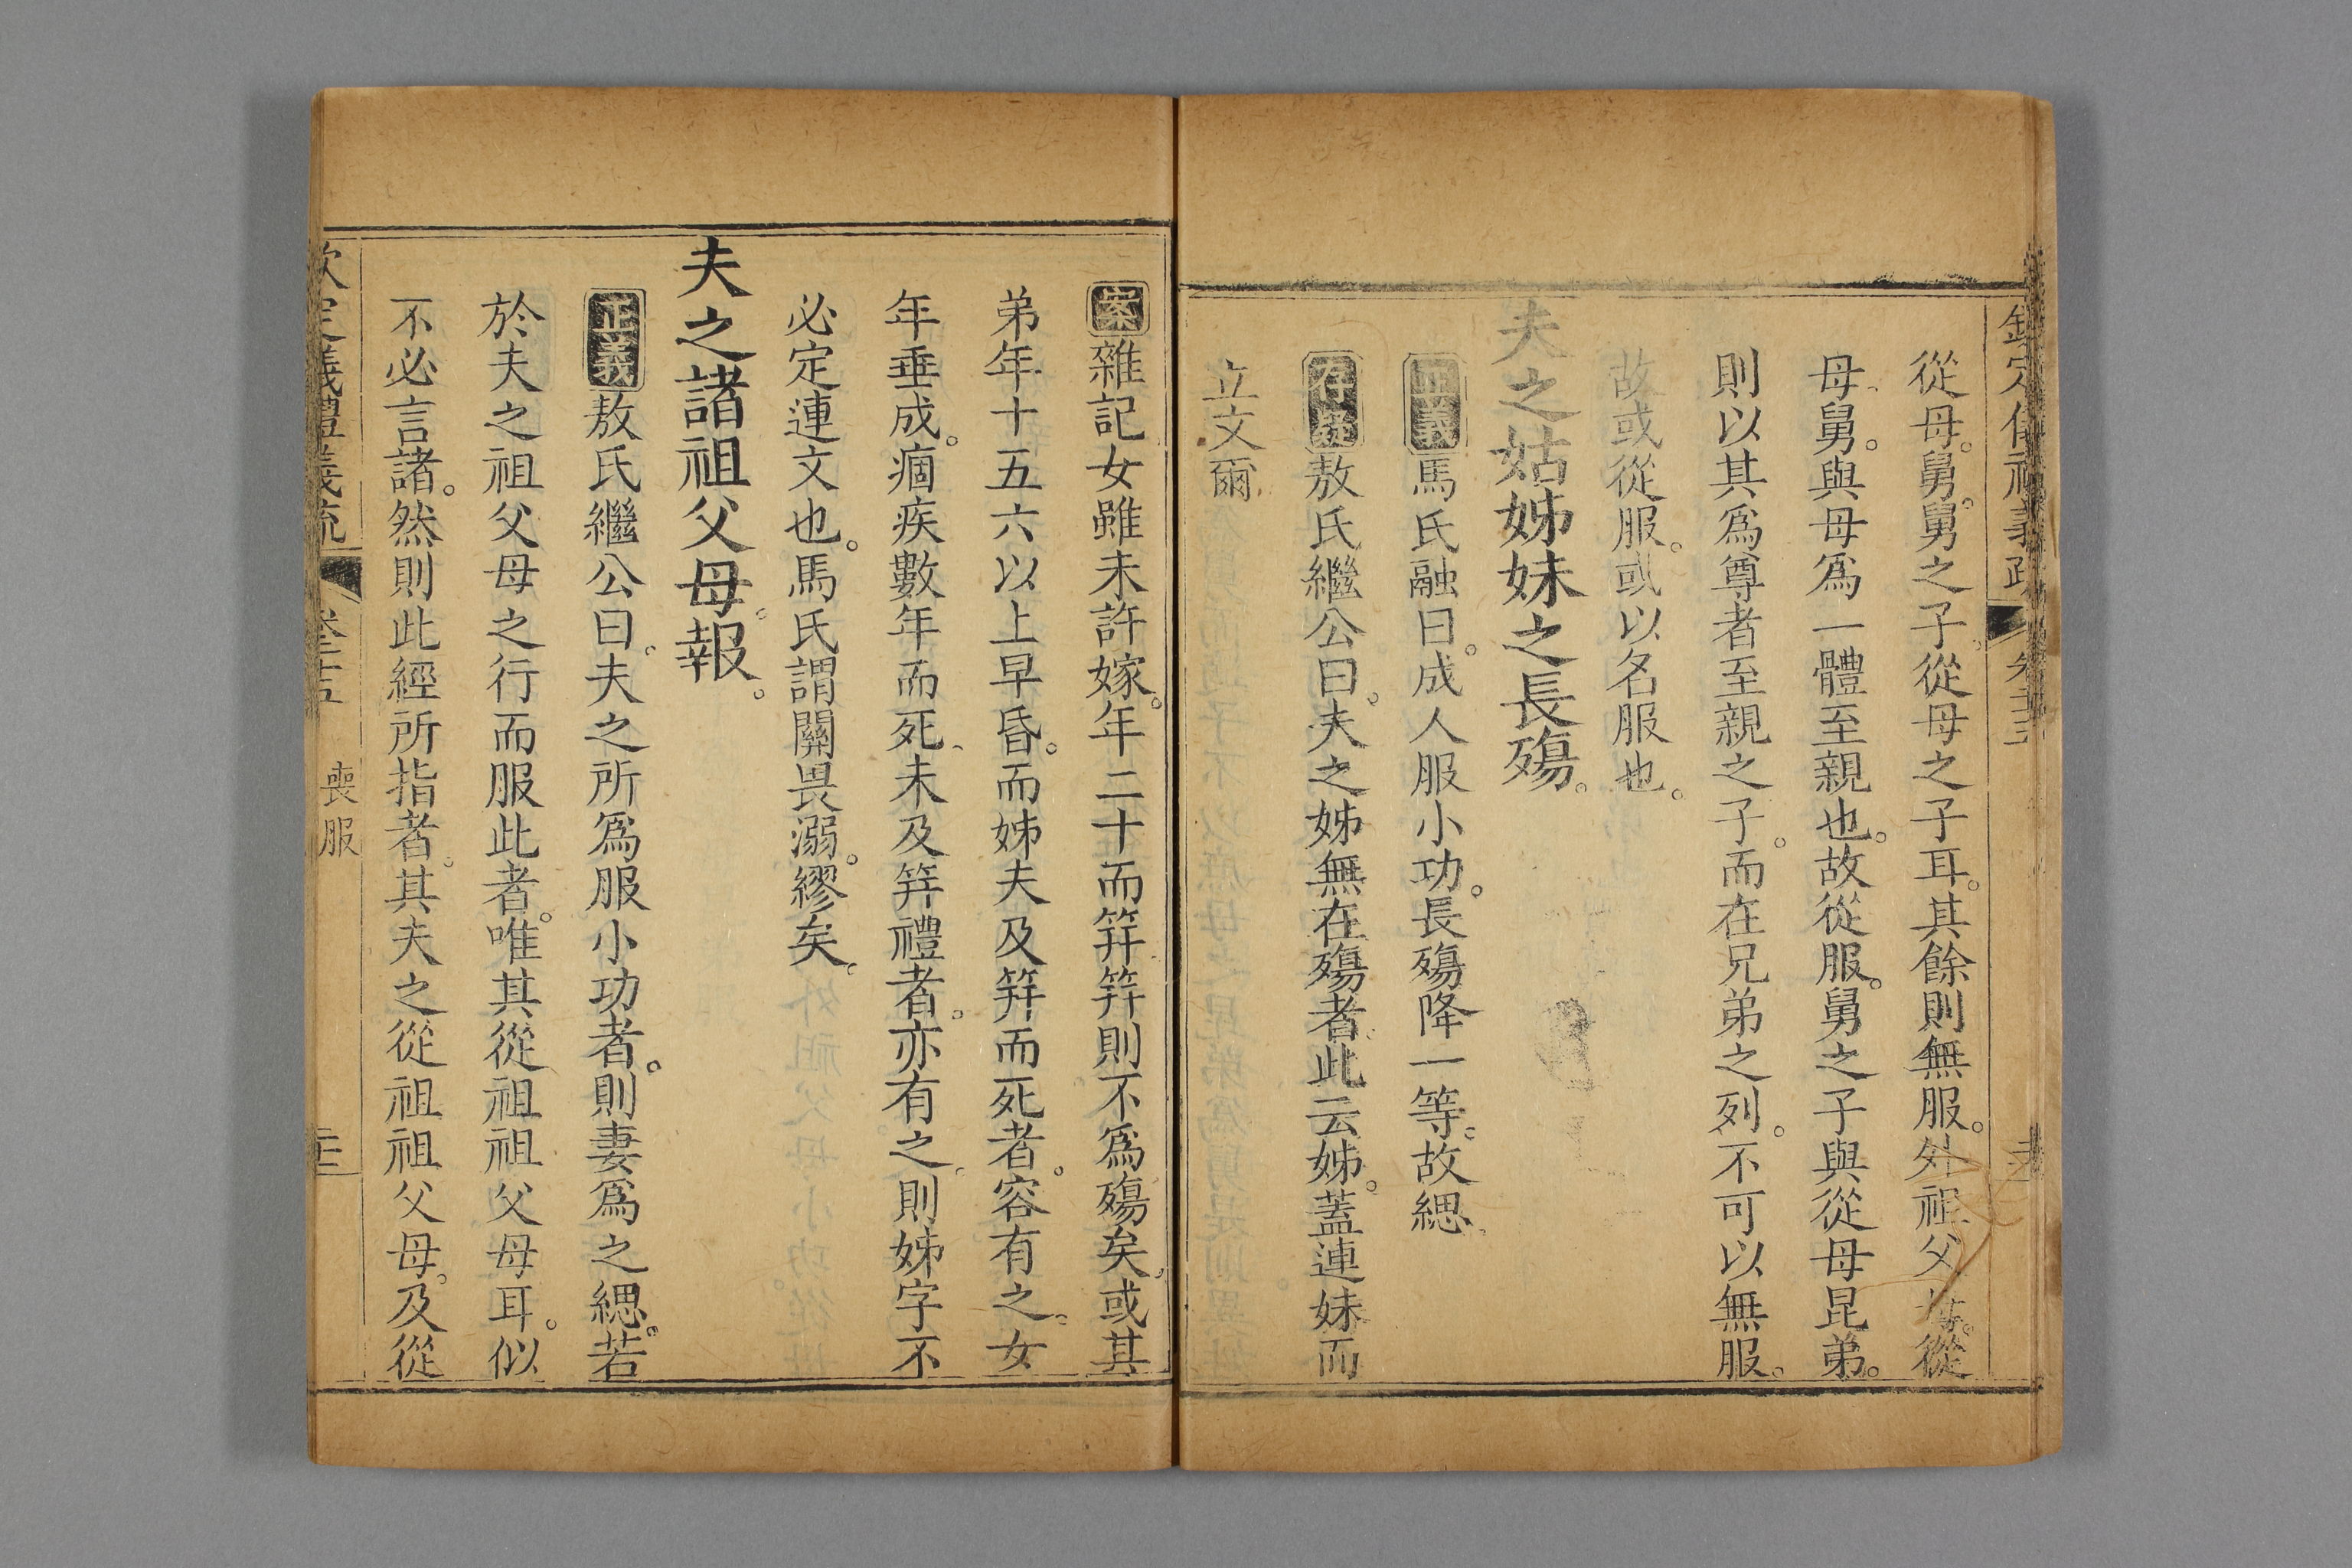 從母。舅。舅之子。從母之子耳。其餘則無服。外祖父母。從
母、舅。與母爲一體至親也。故從服。舅之子與從母昆弟。
則以其爲尊者至親之子。而在兄弟之列。不可以無服。
故或從服。或以名服也。
夫之姑姊妹之長殤。
正義馬氏融曰。成人服小功。長殤降一等。故緦。
存疑敖氏繼公曰。夫之姊無在殤者。此云姊。蓋連妹而
立文爾。
案雜記女雖未許嫁。年二十而笄。笄則不爲殤矣。或其
弟年十五六以上早昏。而姊夫及笄而死者。容有之。女
年垂成。痼疾數年而死、未及笄禮者。亦有之。則姊字不
必定連文也。馬氏謂關畏溺。繆矣。
夫之諸祖父母。報。
正義敖氏繼公曰。夫之所爲服小功者。則妻爲之緦。若
於夫之祖父母之行而服此者。唯其從祖祖父母耳。似
不必言諸。然則此經所指者。其夫之從祖祖父母。及從
欽定儀禮義疏 卷二十五 喪服